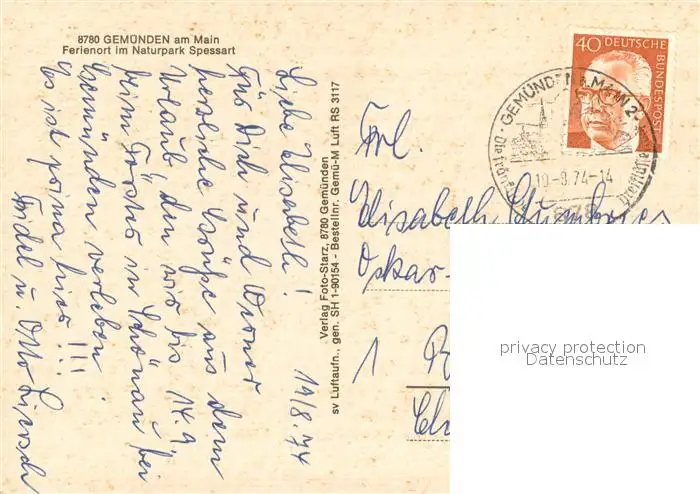 8780 GEMÜNDEN am Main
Ferienort im Naturpark Spessart
19/8.74
Liebe Elisabeth!
Für Dich und Werner
herzliche Grüße aus dem
Urlaub, den wir bis 14.9.
beim Förster in Schönau bei
Gemünden verleben.
Es ist prima hier!!!
Friedel u. Otto
Verlag Foto-Starz, 8780 Gemünden
sv Luftaufn., gen. SH 1-90154 - Bestellnr. Gemü-M Luft RS 3117
40 DEUTSCHE
BUNDESPOST
GEMÜNDEN A. MAIN 2
19-8.74-14
Frl.
Elisabeth
Oskar-
1
privacy protection
Datenschutz